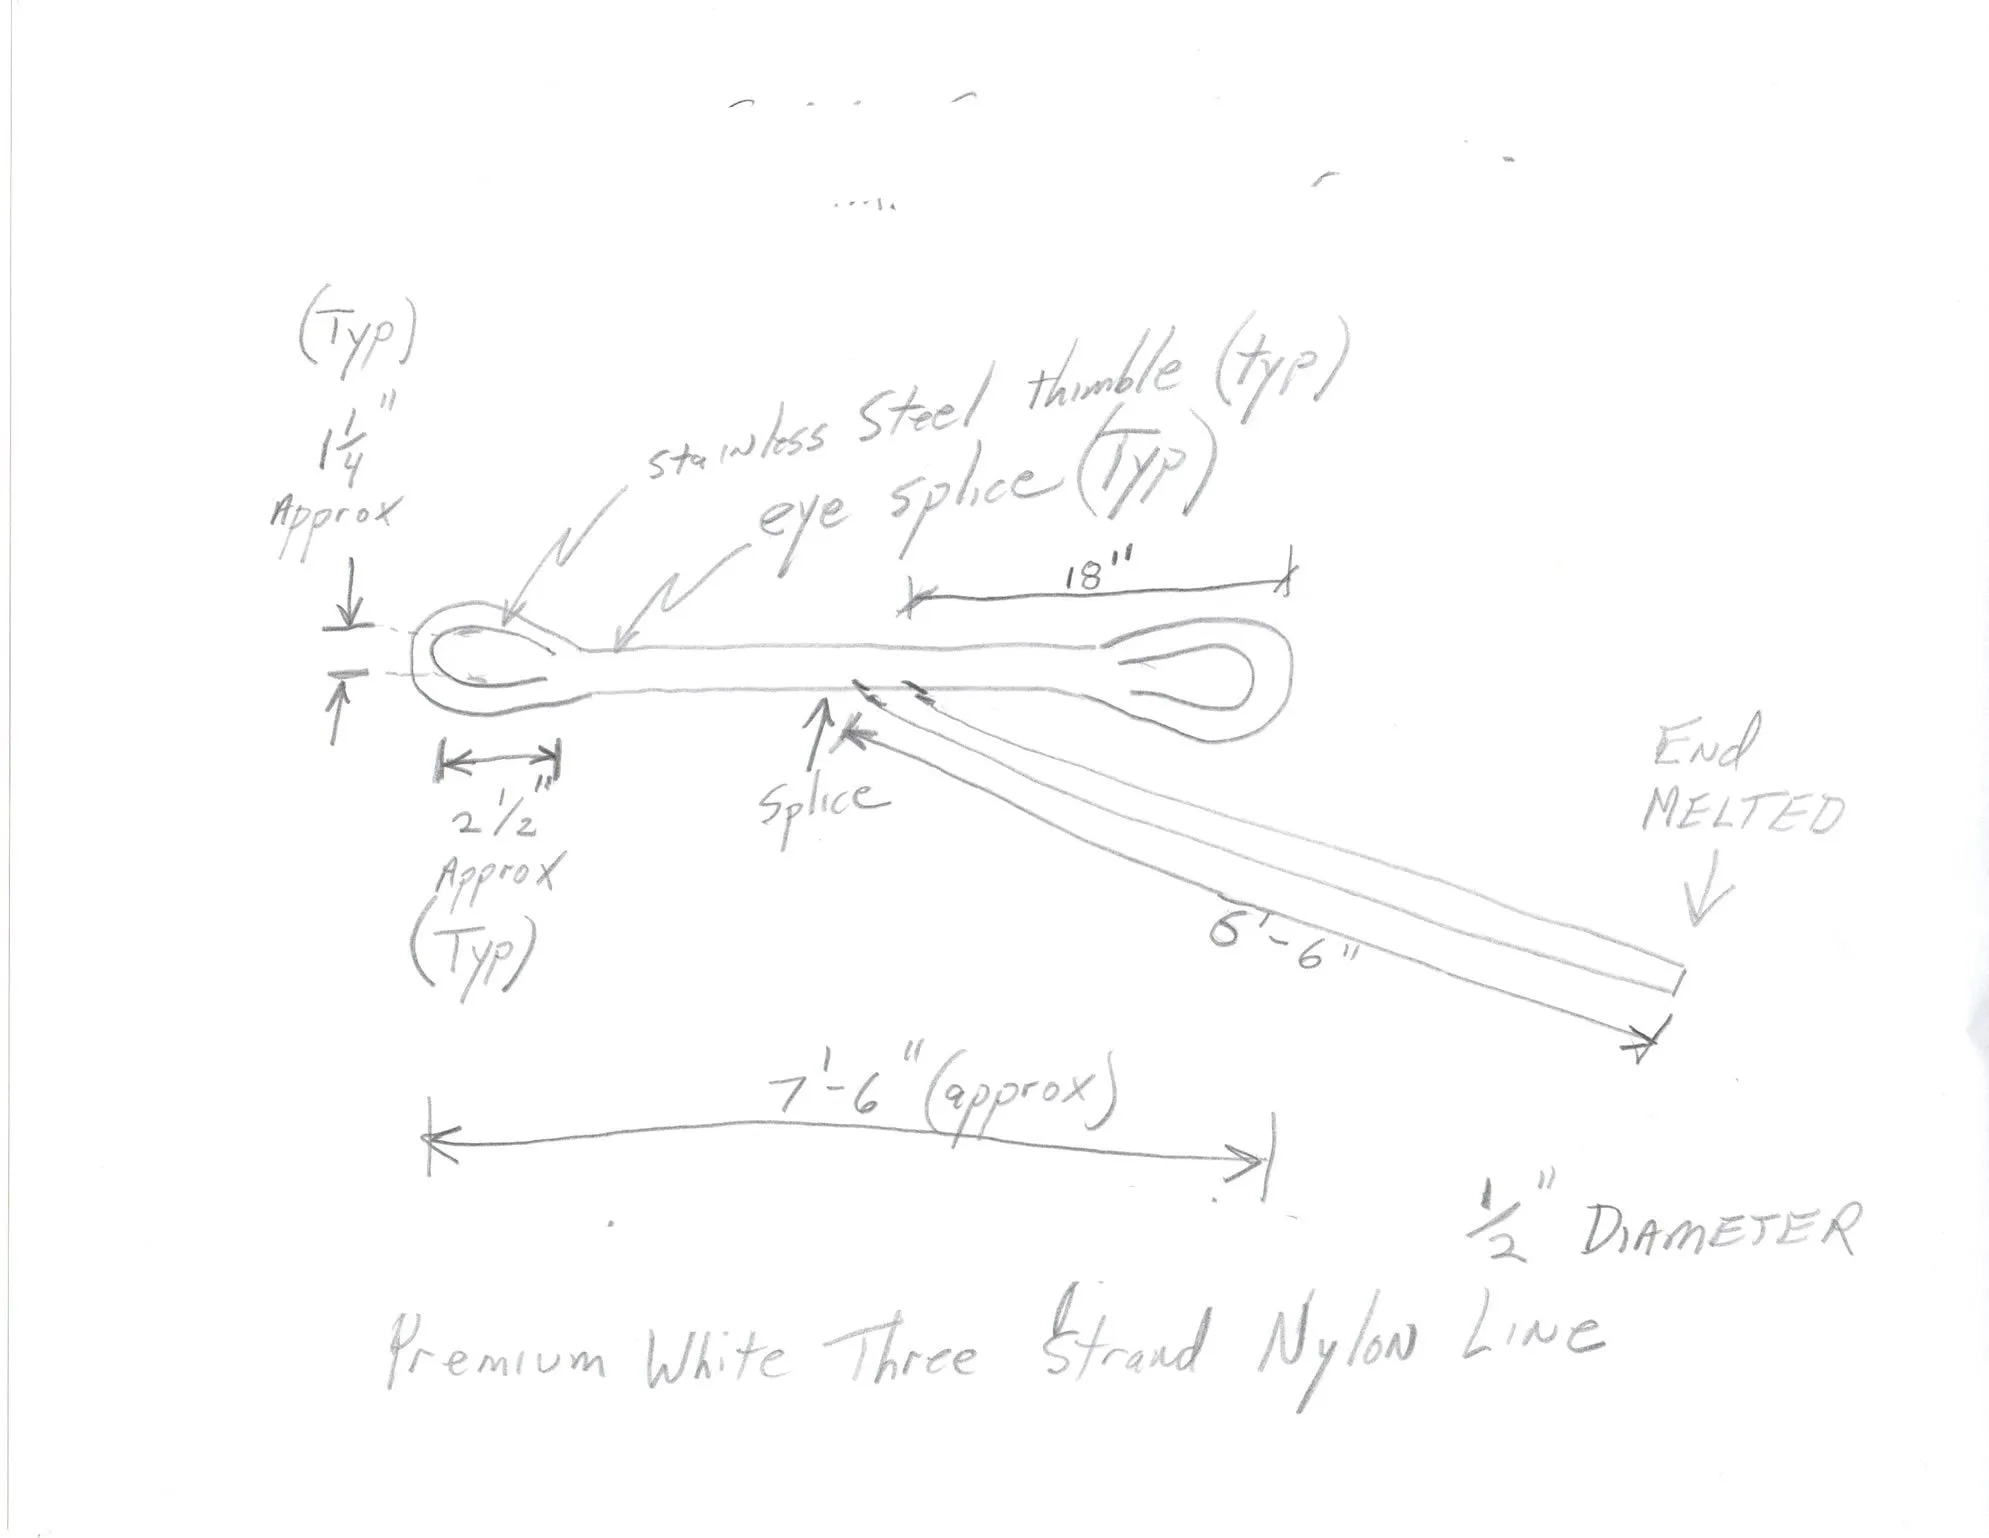 (Typ)
1 1/4"
Approx
stainless Steel thimble (typ)
eye splice (Typ)
18"
2 1/2"
Approx
(Typ)
splice
End
MELTED
6'-6"
7'-6" (approx)
1/2" DIAMETER
Premium White Three Strand Nylon Line